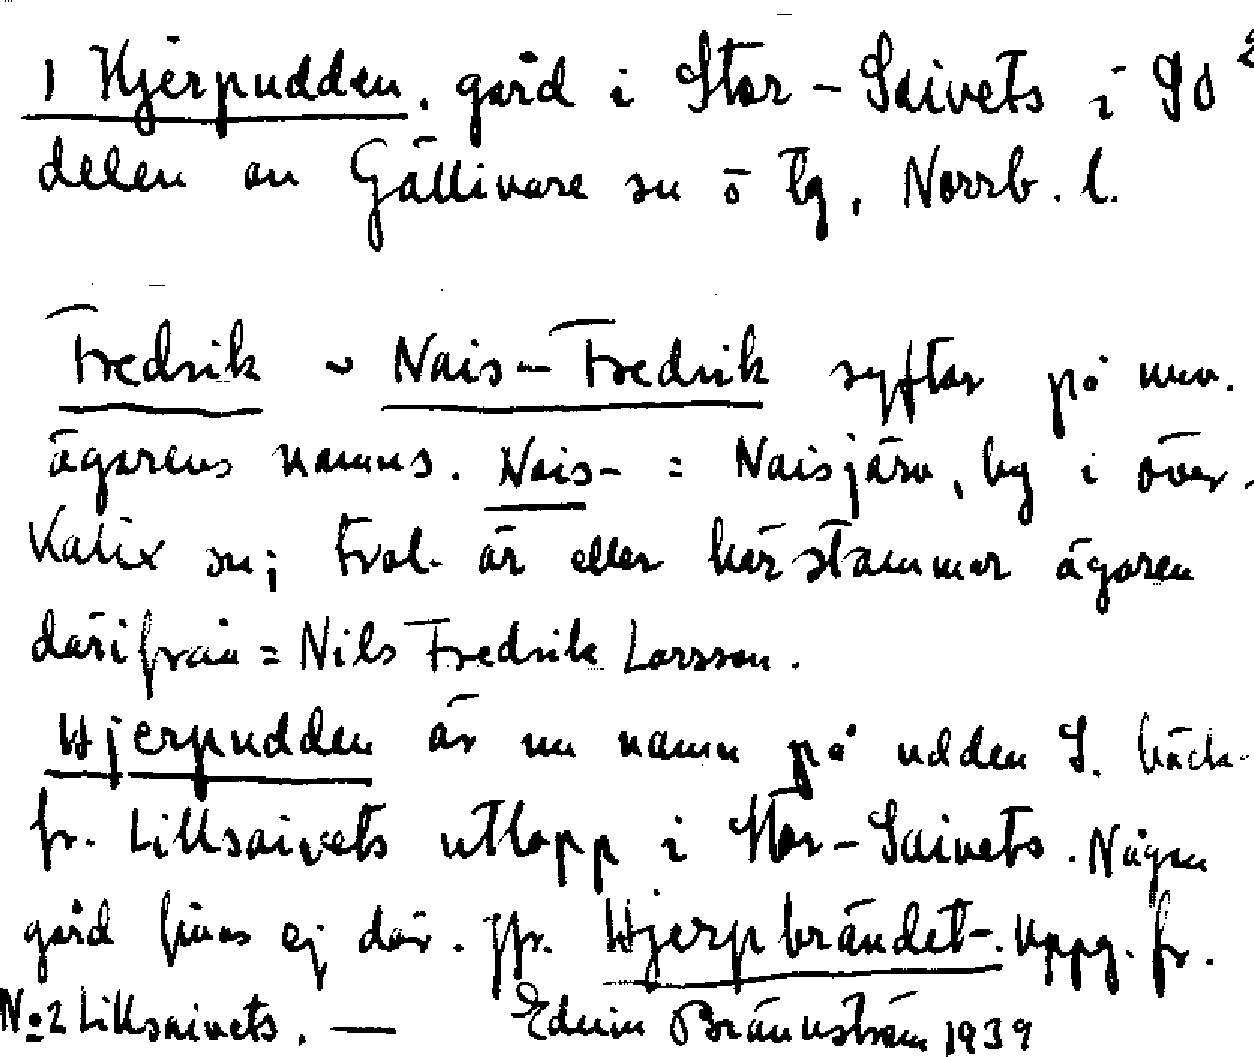 1 Hjerpudden. gård i Stor-Saivets i SO
delen av Gällivare sn ö lg, Norrb. l.
Fredrik ~ Nais-Fredrik syftar på nuv.
ägarens namns. Nais- = Naisjärv, by i över-
Kalix sn; trol. är eller härstammar ägaren
därifrån = Nils Fredrik Larsson.
Hjerpudden är nu namn på udden S. bäck.
fr. Lillsaivets utlopp i Stor-Saivets. Någon
gård finns ej där. Jfr. Hjerpbrändet-. Uppg. fr.
No 2 Lillsaivets. — Edvin Brännström 1939